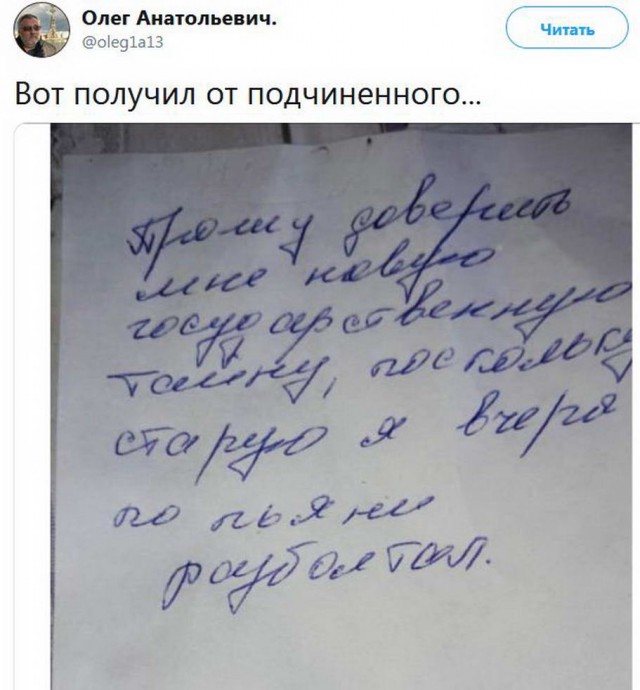 Олег Анатольевич.
@oleg1a13
Читать
Вот получил от подчиненного...
Прошу доверить
мне новую
государственную
тайну, поскольку
старую я вчера
по пьяни
разболтал.